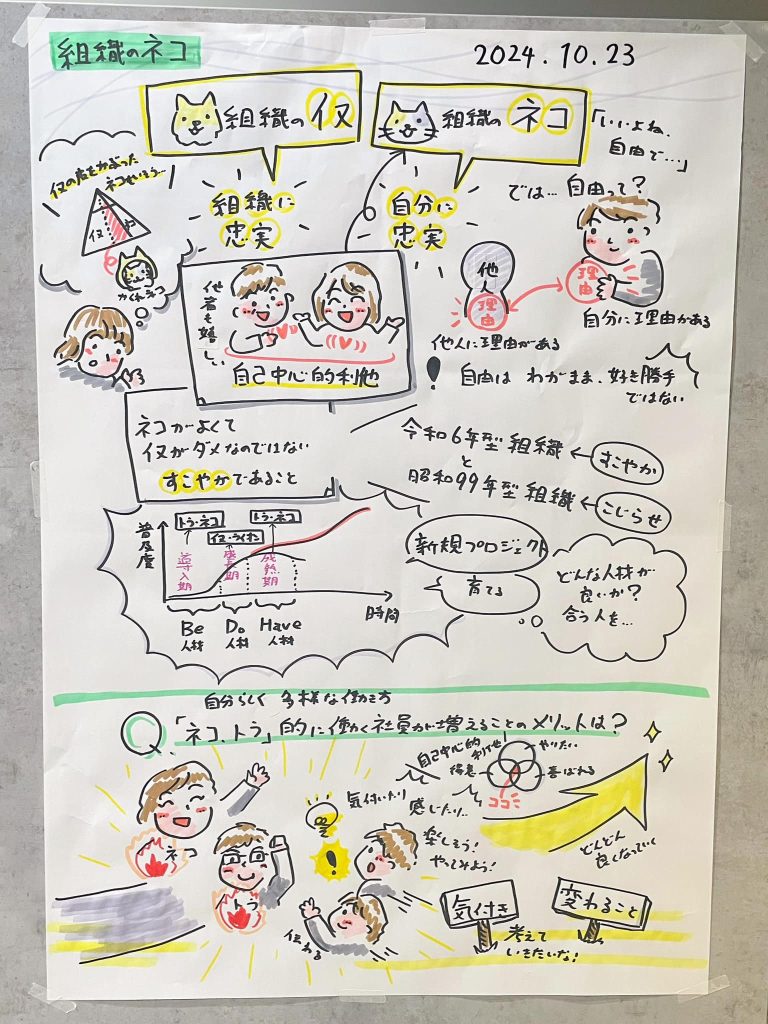 組織のネコ
2024.10.23
組織のイヌ
組織のネコ
「いいよね、
自由で…」
イヌの皮をかぶった
ネコもいそう…
イヌ
かくれネコ
組織に
忠実
自分に
忠実
では… 自由って?
他人
理由
理由
他人に理由がある
自分に理由がある
他者も嬉しい
自己中心的利他
! 自由は わがまま、好き勝手
ではない
ネコがよくて
イヌがダメなのではない
すこやかであること
令和6年型組織 ← すこやか
と
昭和99年型組織 ← こじらせ
普及度
トラ・ネコ
イヌ・ライオン
トラ・ネコ
導入期
成熟期
時間
Be
人材
Do
人材
Have
人材
新規プロジェクト
育てる
どんな人材が
良いか?
合う人を…
自分らしく 多様な働き方
Q「ネコ、トラ」的に働く社員が増えることのメリットは?
自己中心的
利他
やりたい
得意
喜ばれる
ココ
気付いたり
感じたり…
楽しそう!
やってみよう!
どんどん
良くなっていく
ネコ
トラ
!
伝わる
気付き
変わること
考えて
いきたいな!